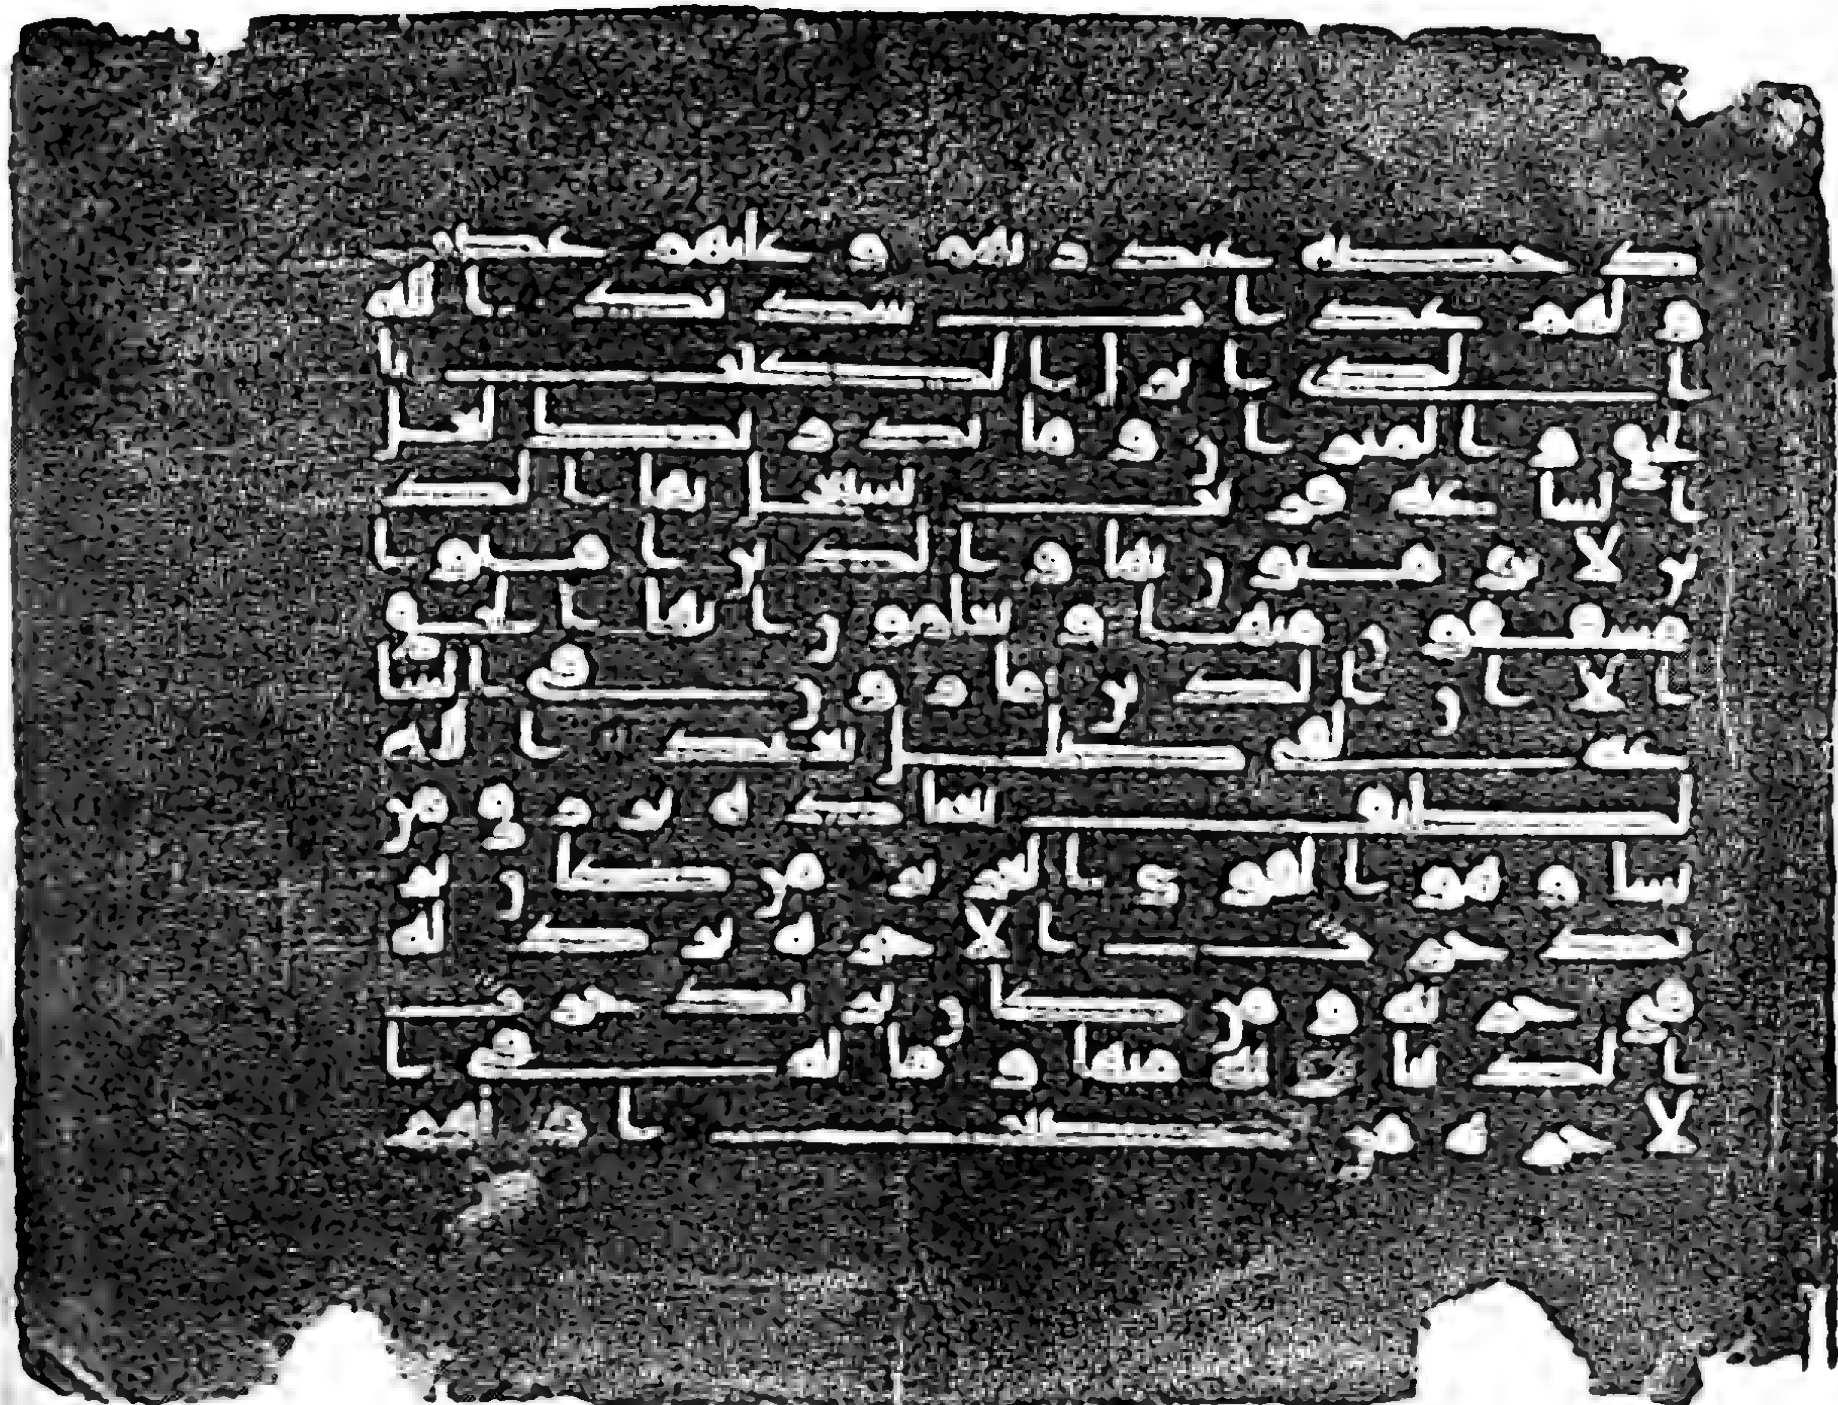 دحضه عند ربهم وعليهم غضب
ولهم عذاب شديد الله
الذي انزل الكتب با
لحق والميزان وما يدريك لعل
الساعه قريب يستعجل بها الذ
ين لا يومنون بها والذين امنوا
مشفقون منها ويعلمون انها الحق
الا ان الذين يمارون في السا
عه لفي ضلل بعيد الله
لطيف بعباده يرزق من
يشا وهو القوي العزيز من كان ير
يد حرث الاخره نزد له
في حرثه ومن كان يريد حرث
الدنيا نوته منها وما له في ا
لاخره من نصيب ام لهم